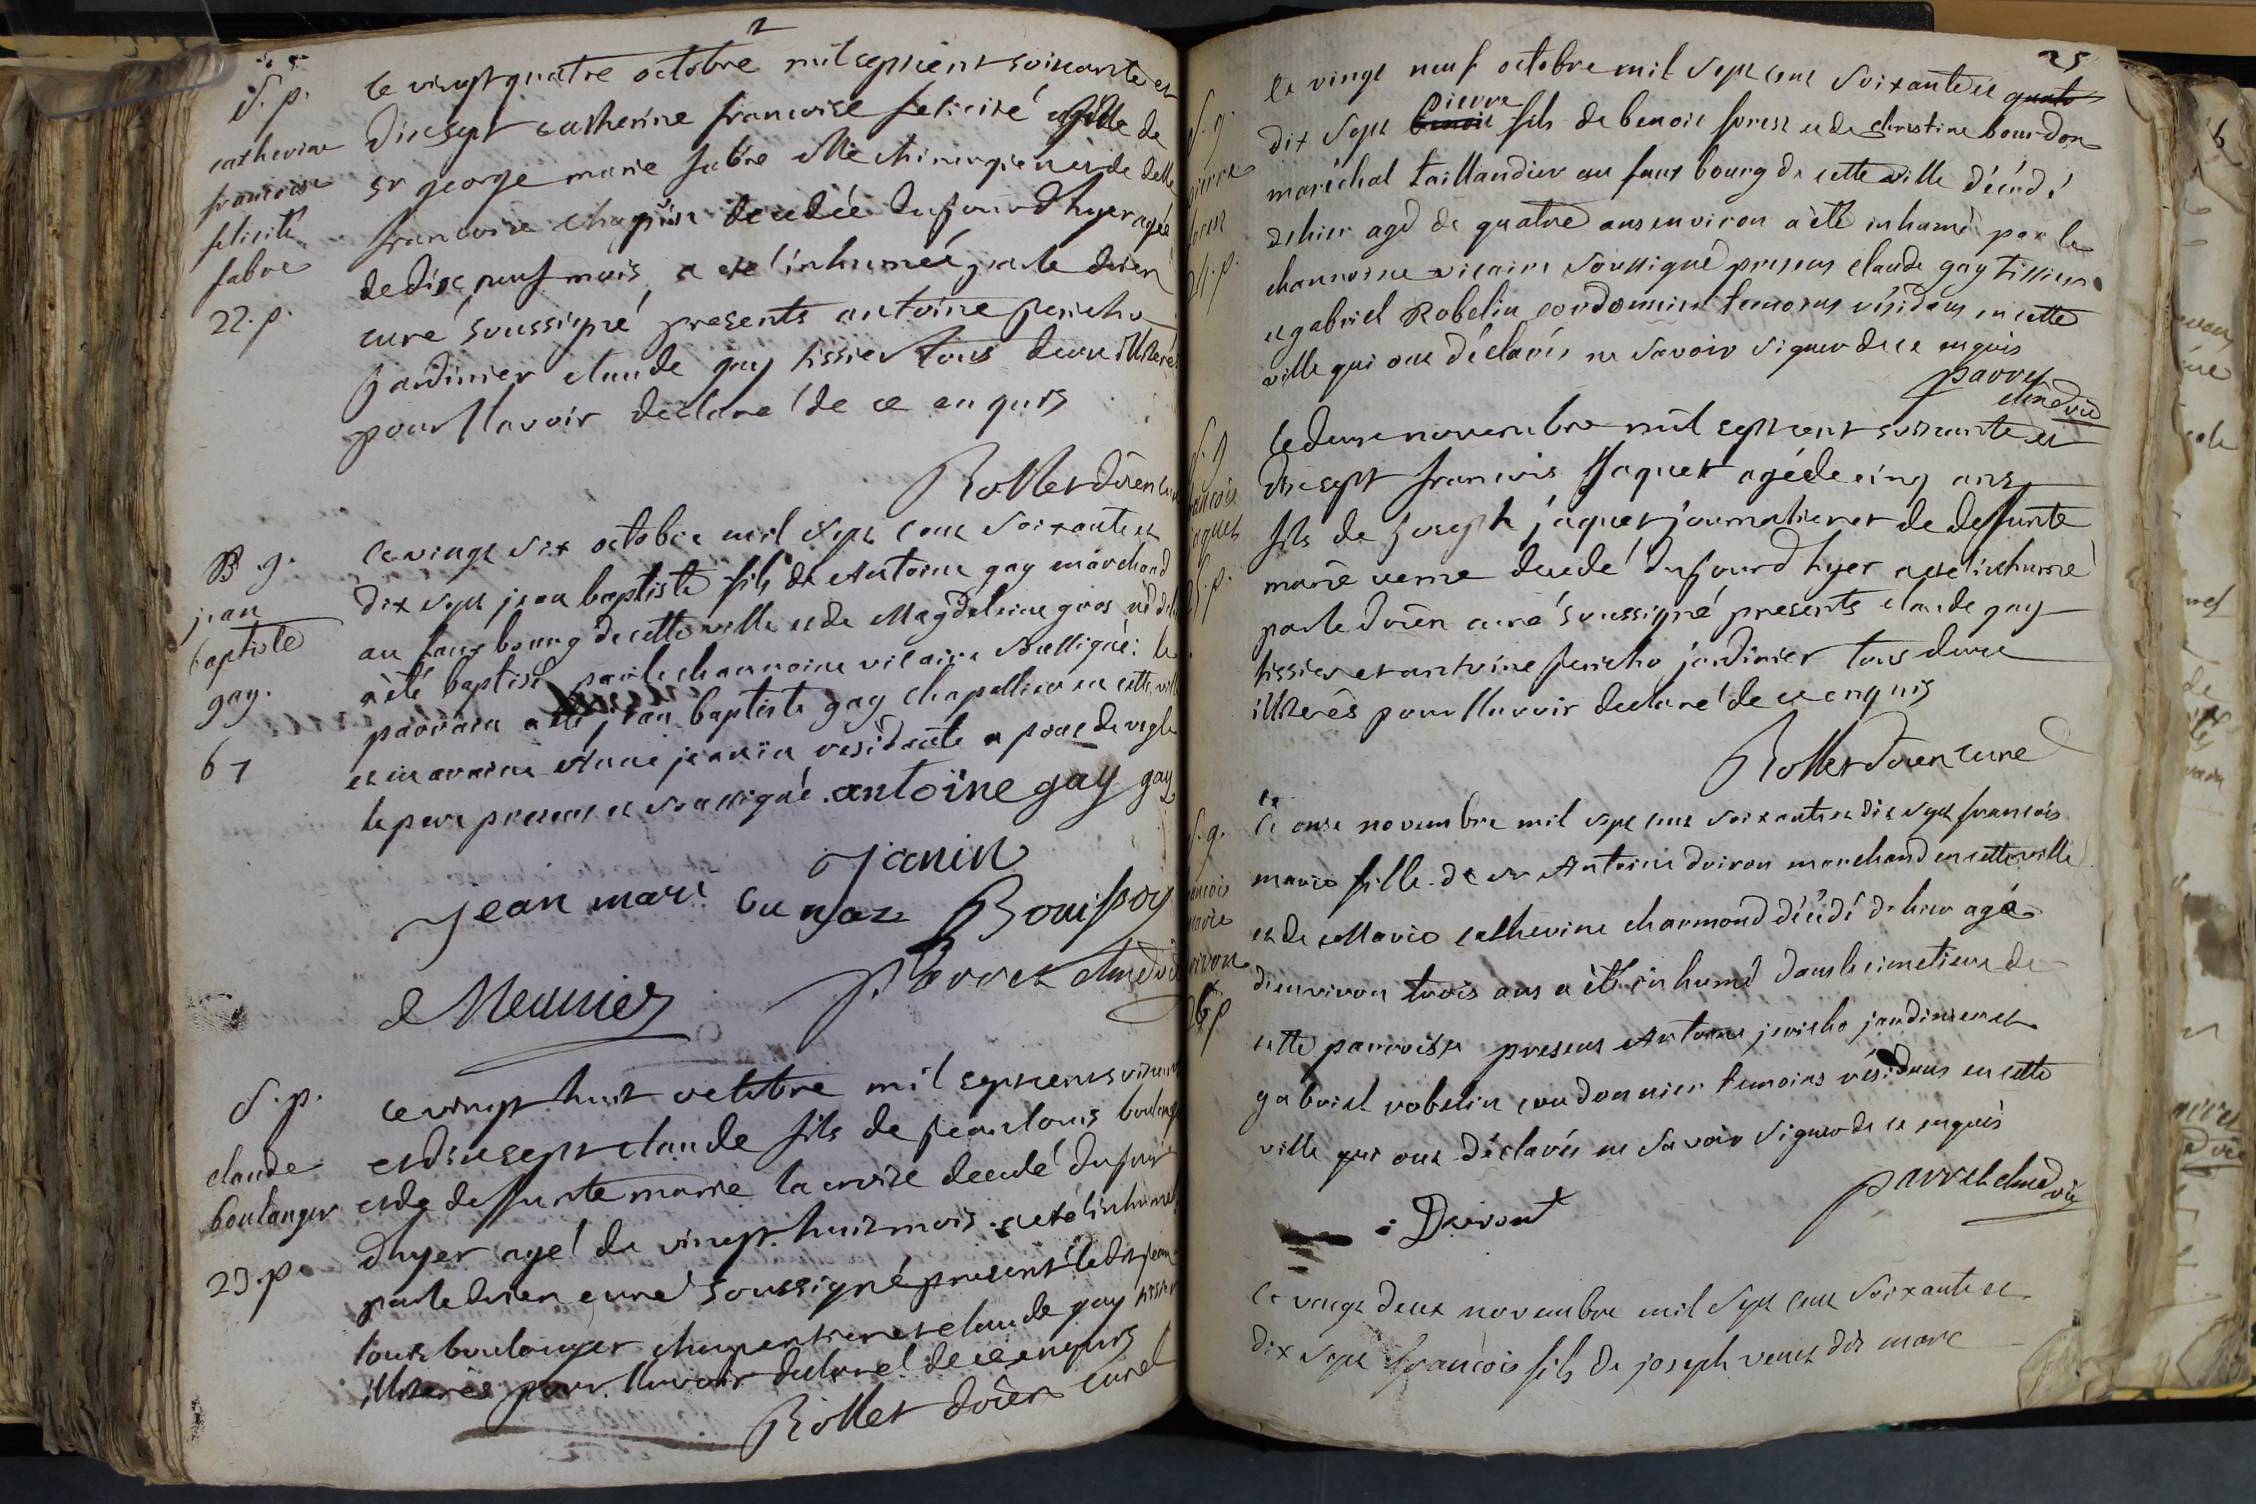 S. p.
catherine
francoise
felicité
fabre
22. p.
le vingt quatre octobre mil sept cent soixante et
dixsept catherine francoise felicité fille de
sr george marie fabre Me chirurgien et de delle
francoise chapuis decedée du jour d'hyer agée
de dix neuf mois a eté inhumée par le doien
curé soussigné presents antoine jericho
jardinier claude gay tissier tous deux illiterés
pour l'avoir declaré de ce enquis
Rollet doien curé
B g.
jean
baptiste
gay.
67
ce vingt six octobre mil sept cent soixante et
dix sept jean baptiste fils de Antoine gay marchand
au faux bourg de cette ville et de Magdeleine gros né
a été baptisé par le chanoine vicaire soussigné: le
parrain a été jean baptiste gay chapellier en cette ville
et marraine Anne jeanin residente a pont de vesle
le pere present et soussigné. antoine gay gay
Janin
jean mari Bouissoy
Meunier Parret chne vic
S. p.
claude
boulanger
23. p.
ce vingt huit octobre mil sept cent soixante
et dixsept claude fils de jean louis boulanger
et de deffunte marie la croix decedé du jour
d'hyer agé de vingt huit mois a eté inhumé
par le doien curé soussigné present ledit jean
louis boulanger charpentier et claude gay tissier
illiterés pour l'avoir declaré de ce enquis
Rollet doien curé
25
S. g.
pierre
forest
24. p.
le vingt neuf octobre mil sept cent soixante et quato
dix sept benoit pierre fils de benoit forest et de christine bourdon
maréchal taillandier au faux bourg de cette ville décédé
d'hier agé de quatre ans environ a été inhumé par le
chanoine vicaire soussigné presens claude gay tissier
et gabriel Robelin cordonnier temoins résidens en cette
ville qui ont déclarés ne savoir signer de ce enquis
parret
chne vic
S. g
francois
jaquet
25. p.
le deux novembre mil sept cent soixante et
dixsept francois Jaquet agé de cinq ans
fils de joseph jaquet journalier et de deffunte
marie verne decedé du jour d'hyer a eté inhumé
par le doien curé soussigné presents claude gay
tissier et antoine jericho jardinier tous deux
illiterés pour l'avoir declaré de ce enquis
Rollet doien curé
S. g.
francois
marie
26 p
le onze novembre mil sept cent soixante et dix sept francois
marie fille de sr Antoine doiron marchand en cette ville
et de Marie catherine charmond décédé d'hier agé
d'environ trois ans a été inhumé dans le cimetiere de
cette parroisse presens Antoine jericho jardinier et
gabriel robelin cordonnier temoins résidens en cette
ville qui ont déclarés ne savoir signer de ce enquis
parret chne vic
Doiront
le vingt deux novembre mil sept cent soixante et
dix sept francois fils de joseph venet dit marc